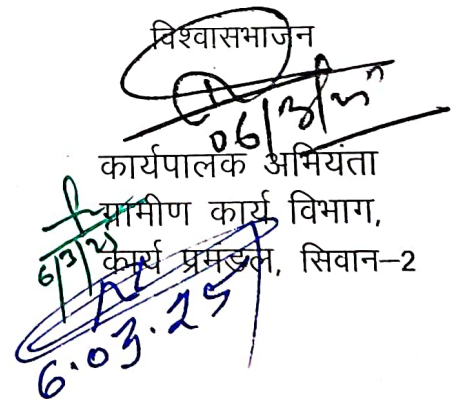 विश्वासभाजन
06/3/25
कार्यपालक अभियंता
ग्रामीण कार्य विभाग,
6/3/25
कार्य प्रमंडल, सिवान-2
6.03.25